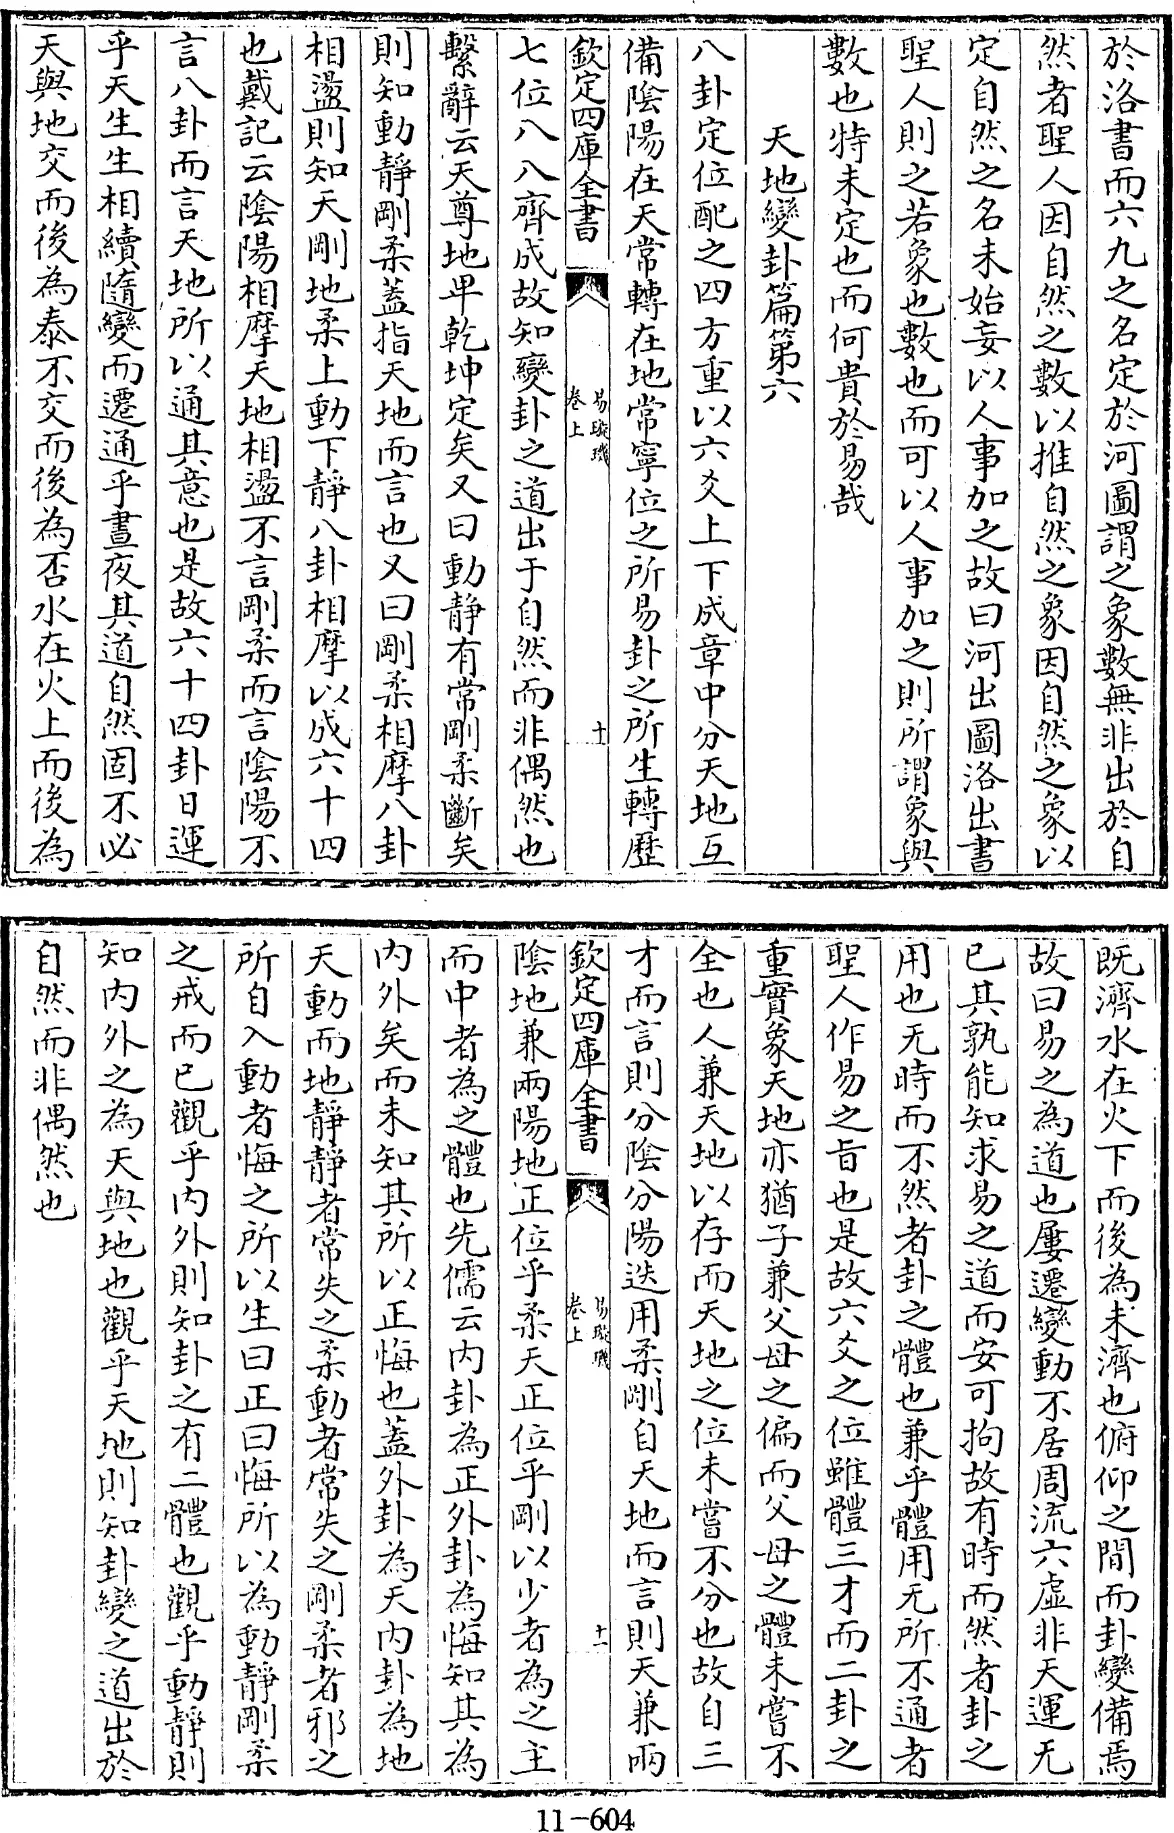 於洛書而六九之名定於河圖謂之象數無非出於自
然者聖人因自然之數以推自然之象因自然之象以
定自然之名未始妄以人事加之故曰河出圖洛出書
聖人則之若象也數也而可以人事加之則所謂象與
數也特未定也而何貴於易哉
天地變卦篇第六
八卦定位配之四方重以六爻上下成章中分天地互
備陰陽在天常轉在地常寧位之所易卦之所生轉歷
欽定四庫全書
易璇璣
卷上
十
七位八八齊成故知變卦之道出于自然而非偶然也
繫辭云天尊地卑乾坤定矣又曰動靜有常剛柔斷矣
則知動靜剛柔蓋指天地而言也又曰剛柔相摩八卦
相盪則知天剛地柔上動下靜八卦相摩以成六十四
也戴記云陰陽相摩天地相盪不言剛柔而言陰陽不
言八卦而言天地所以通其意也是故六十四卦日運
乎天生生相續隨變而遷通乎晝夜其道自然固不必
天與地交而後為泰不交而後為否水在火上而後為
既濟水在火下而後為未濟也俯仰之間而卦變備焉
故曰易之為道也屢遷變動不居周流六虛非天運无
已其孰能知求易之道而安可拘故有時而然者卦之
用也无時而不然者卦之體也兼乎體用无所不通者
聖人作易之旨也是故六爻之位雖體三才而二卦之
重實象天地亦猶子兼父母之偏而父母之體未嘗不
全也人兼天地以存而天地之位未嘗不分也故自三
才而言則分陰分陽迭用柔剛自天地而言則天兼兩
欽定四庫全書
易璇璣
卷上
十一
陰地兼兩陽地正位乎柔天正位乎剛以少者為之主
而中者為之體也先儒云內卦為正外卦為悔知其為
內外矣而未知其所以正悔也蓋外卦為天內卦為地
天動而地靜靜者常失之柔動者常失之剛柔者邪之
所自入動者悔之所以生曰正曰悔所以為動靜剛柔
之戒而已觀乎內外則知卦之有二體也觀乎動靜則
知內外之為天與地也觀乎天地則知卦變之道出於
自然而非偶然也
11-604